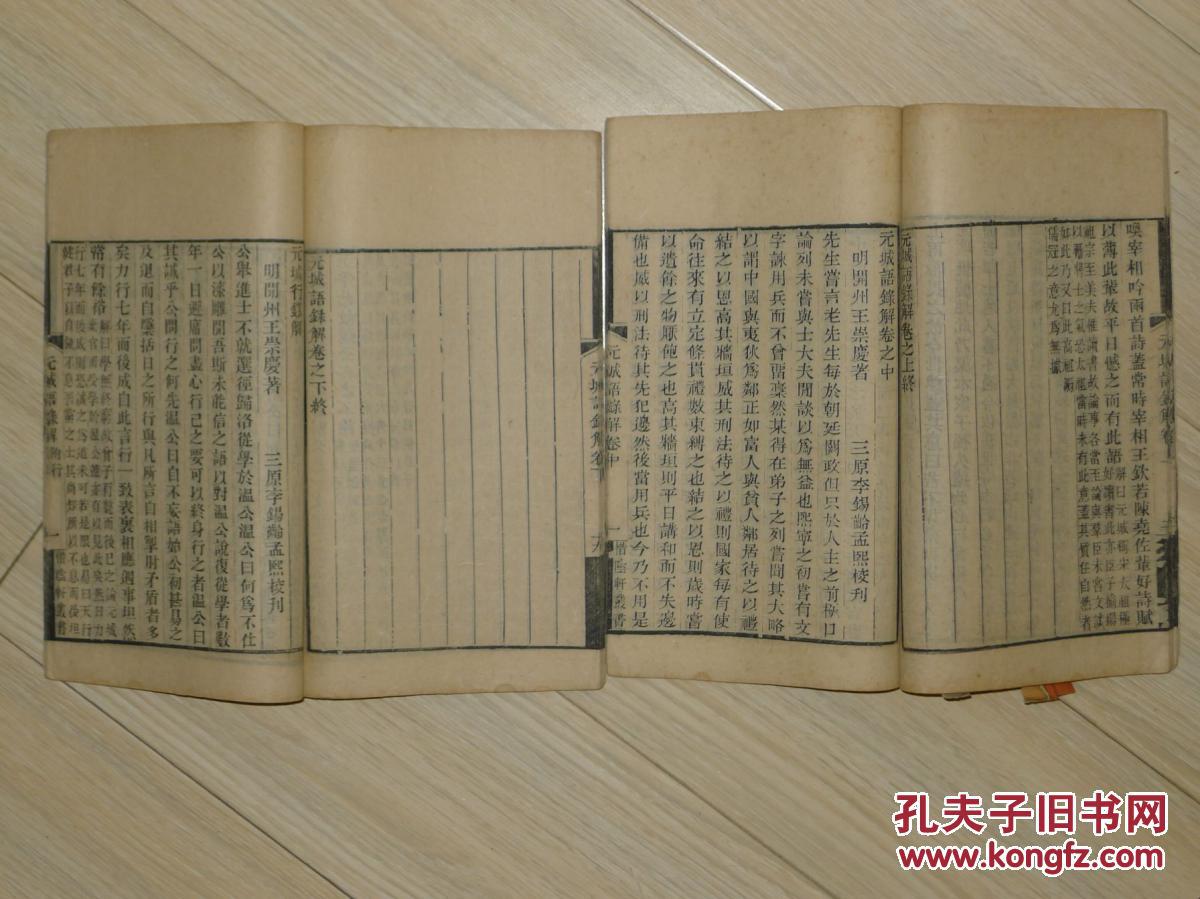 嘆宰相吟兩首詩蓋當時宰相王欽若陳堯佐輩好詩賦
以薄此輩故平日慿之而有此語
元城語錄解卷之上終
元城語錄解卷之中
明開州王崇慶著 三原李錫齡孟熙校刊
先生嘗言老先生每於朝廷闕政但只於人主之前極口
論列未嘗與士大夫閒談以爲無益也熙寧之初嘗有文
字諫用兵而不曾留稾然某得在弟子之列嘗聞其大略
以謂中國與夷狄爲鄰正如富人與貧人鄰居待之以禮
結之以恩高其牆垣威其刑法待之以禮則國家每有使
命往來有立定條貫禮數束縛之也結之以恩則歲時嘗
以遺餘之物厭飽之也高其牆垣則平日講和而不失邊
備也威以刑法待其先犯邊然後當用兵也今乃不用是
元城語錄解卷中
一
惜陰軒叢書
元城語錄解卷之下終
元城行錄解
明開州王崇慶著 三原李錫齡孟熙校刊
公舉進士不就選徑歸洛從學於溫公溫公曰何爲不仕
公以漆雕開吾斯未能信之語以對溫公說復從學者數
年一日避席問盡心行己之要可以終身行之者溫公曰
其誠乎公問行之何先溫公曰自不妄語始公初甚易之
及退而自檃括日之所行與凡所言自相掣肘矛盾者多
矣力行七年而後成自此言行一致表裏相應遇事坦然
常有餘裕
元城語錄解附行
一
惜陰軒叢書
孔夫子旧书网
www.kongfz.com